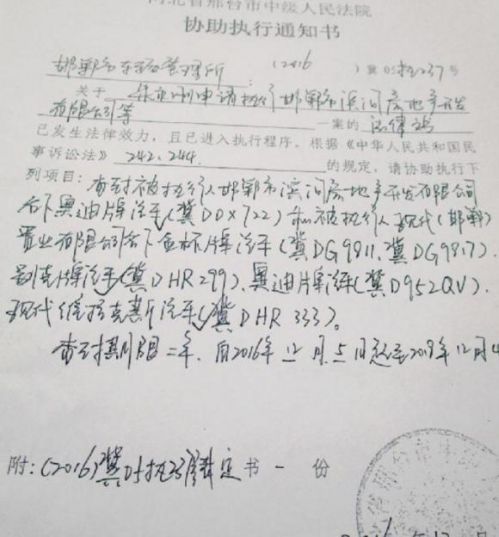 河北省邢台市中级人民法院
协助执行通知书
邯郸市车辆管理所 (2016)冀05执237号
关于 申请执行邯郸市滨河房地产开发
有限公司等 一案的 法律
已发生法律效力，且已进入执行程序。根据《中华人民共和国民
事诉讼法》 242、244 的规定，请协助执行下
列项目：查封被执行人邯郸市滨河房地产开发有限公司
名下奥迪牌汽车(冀D0X722)和被执行人现代(邯郸)
置业有限公司名下金杯牌汽车(冀DG9811、冀DG9817)、
别克牌汽车(冀DHR299)、奥迪牌汽车(冀D952QV)、
现代维拉克斯汽车(冀DHR333)。
查封期限二年，自2016年12月5日起至2018年12月4
附：(2016)冀05执 裁定书一份